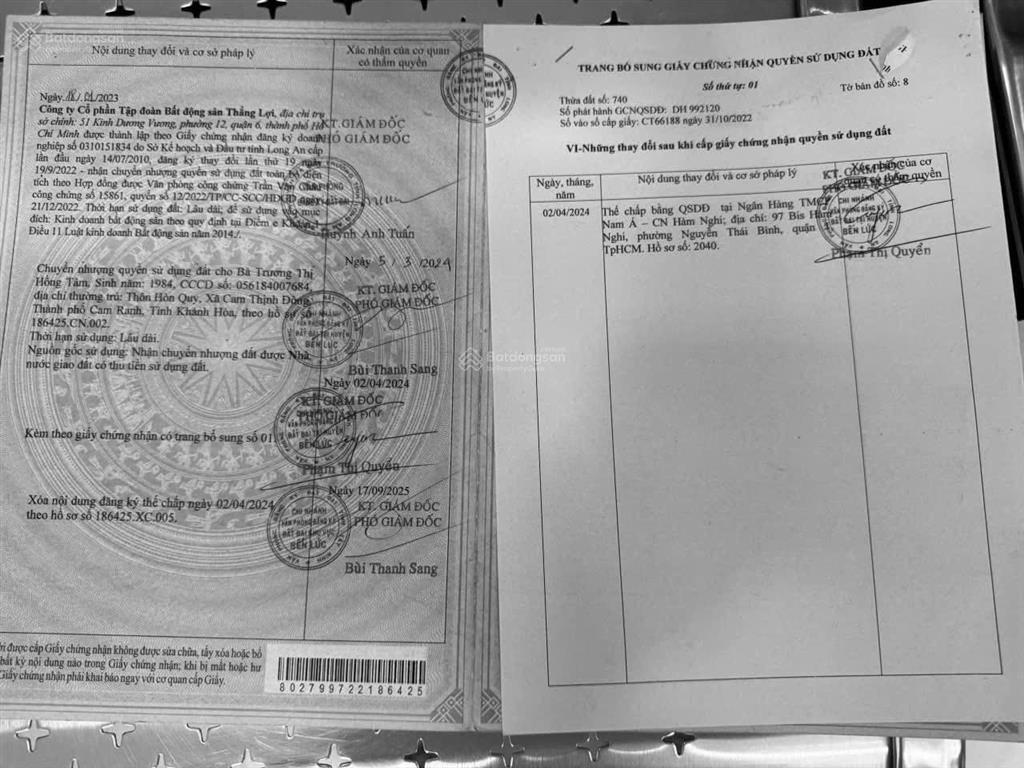 Nội dung thay đổi và cơ sở pháp lý
Xác nhận của cơ quan
có thẩm quyền
Ngày /01/2023
Công ty Cổ phần Tập đoàn Bất động sản Thắng Lợi, địa chỉ trụ
sở chính: 51 Kinh Dương Vương, phường 12, quận 6, thành phố Hồ
Chí Minh được thành lập theo Giấy chứng nhận đăng ký doanh
nghiệp số 0310151834 do Sở Kế hoạch và Đầu tư tỉnh Long An cấp
lần đầu ngày 14/07/2010, đăng ký thay đổi lần thứ 19 ngày
19/9/2022 - nhận chuyển nhượng quyền sử dụng đất toàn bộ diện
tích theo Hợp đồng được Văn phòng công chứng Trần Văn
công chứng số 15861, quyển số 12/2022/TP/CC-SCC/HĐGD
21/12/2022. Thời hạn sử dụng đất: Lâu dài; để sử dụng vào mục
đích: Kinh doanh bất động sản theo quy định tại Điểm e Khoản 1
Điều 11 Luật kinh doanh Bất động sản năm 2014./.
KT. GIÁM ĐỐC
PHÓ GIÁM ĐỐC
Huỳnh Anh Tuấn
Chuyển nhượng quyền sử dụng đất cho Bà Trương Thị
Hồng Tâm, Sinh năm: 1984, CCCD số: 056184007684,
địa chỉ thường trú: Thôn Hòn Quy, Xã Cam Thịnh Đông,
Thành phố Cam Ranh, Tỉnh Khánh Hòa, theo hồ sơ số
186425.CN.002.
Thời hạn sử dụng: Lâu dài.
Nguồn gốc sử dụng: Nhận chuyển nhượng đất được Nhà
nước giao đất có thu tiền sử dụng đất.
Ngày 5/3/2024
KT. GIÁM ĐỐC
PHÓ GIÁM ĐỐC
CHI NHÁNH
VĂN PHÒNG ĐĂNG KÝ
ĐẤT ĐAI TẠI HUYỆN
BẾN LỨC
Bùi Thanh Sang
Ngày 02/04/2024
KT. GIÁM ĐỐC
PHÓ GIÁM ĐỐC
Kèm theo giấy chứng nhận có trang bổ sung số 01.
ĐẤT ĐAI TẠI HUYỆN
BẾN LỨC
Phạm Thị Quyển
Ngày 17/09/2025
Xóa nội dung đăng ký thế chấp ngày 02/04/2024
theo hồ sơ số 186425.XC.005.
KT. GIÁM ĐỐC
PHÓ GIÁM ĐỐC
CHI NHÁNH
VĂN PHÒNG ĐĂNG KÝ
ĐẤT ĐAI KHU VỰC
BẾN LỨC
Bùi Thanh Sang
được cấp Giấy chứng nhận không được sửa chữa, tẩy xóa hoặc bổ
bất kỳ nội dung nào trong Giấy chứng nhận; khi bị mất hoặc hư
Giấy chứng nhận phải khai báo ngay với cơ quan cấp Giấy.
802799722186425
TRANG BỔ SUNG GIẤY CHỨNG NHẬN QUYỀN SỬ DỤNG ĐẤT
Số thứ tự: 01
Thửa đất số: 740
Tờ bản đồ số: 8
Số phát hành GCNQSDĐ: DH 992120
Số vào sổ cấp giấy: CT66188 ngày 31/10/2022
VI-Những thay đổi sau khi cấp giấy chứng nhận quyền sử dụng đất
Ngày, tháng,
năm
Nội dung thay đổi và cơ sở pháp lý
Xác nhận của cơ
quan có thẩm quyền
02/04/2024
Thế chấp bằng QSDĐ tại Ngân Hàng TMCP
Nam Á – CN Hàm Nghi; địa chỉ: 97 Bis Hàm
Nghi, phường Nguyễn Thái Bình, quận
TpHCM. Hồ sơ số: 2040.
KT. GIÁM ĐỐC
PHÓ GIÁM ĐỐC
CHI NHÁNH
VĂN PHÒNG ĐĂNG KÝ
BẾN LỨC
Phạm Thị Quyển
Batdongsan
by PropertyGuru
Batdongsan